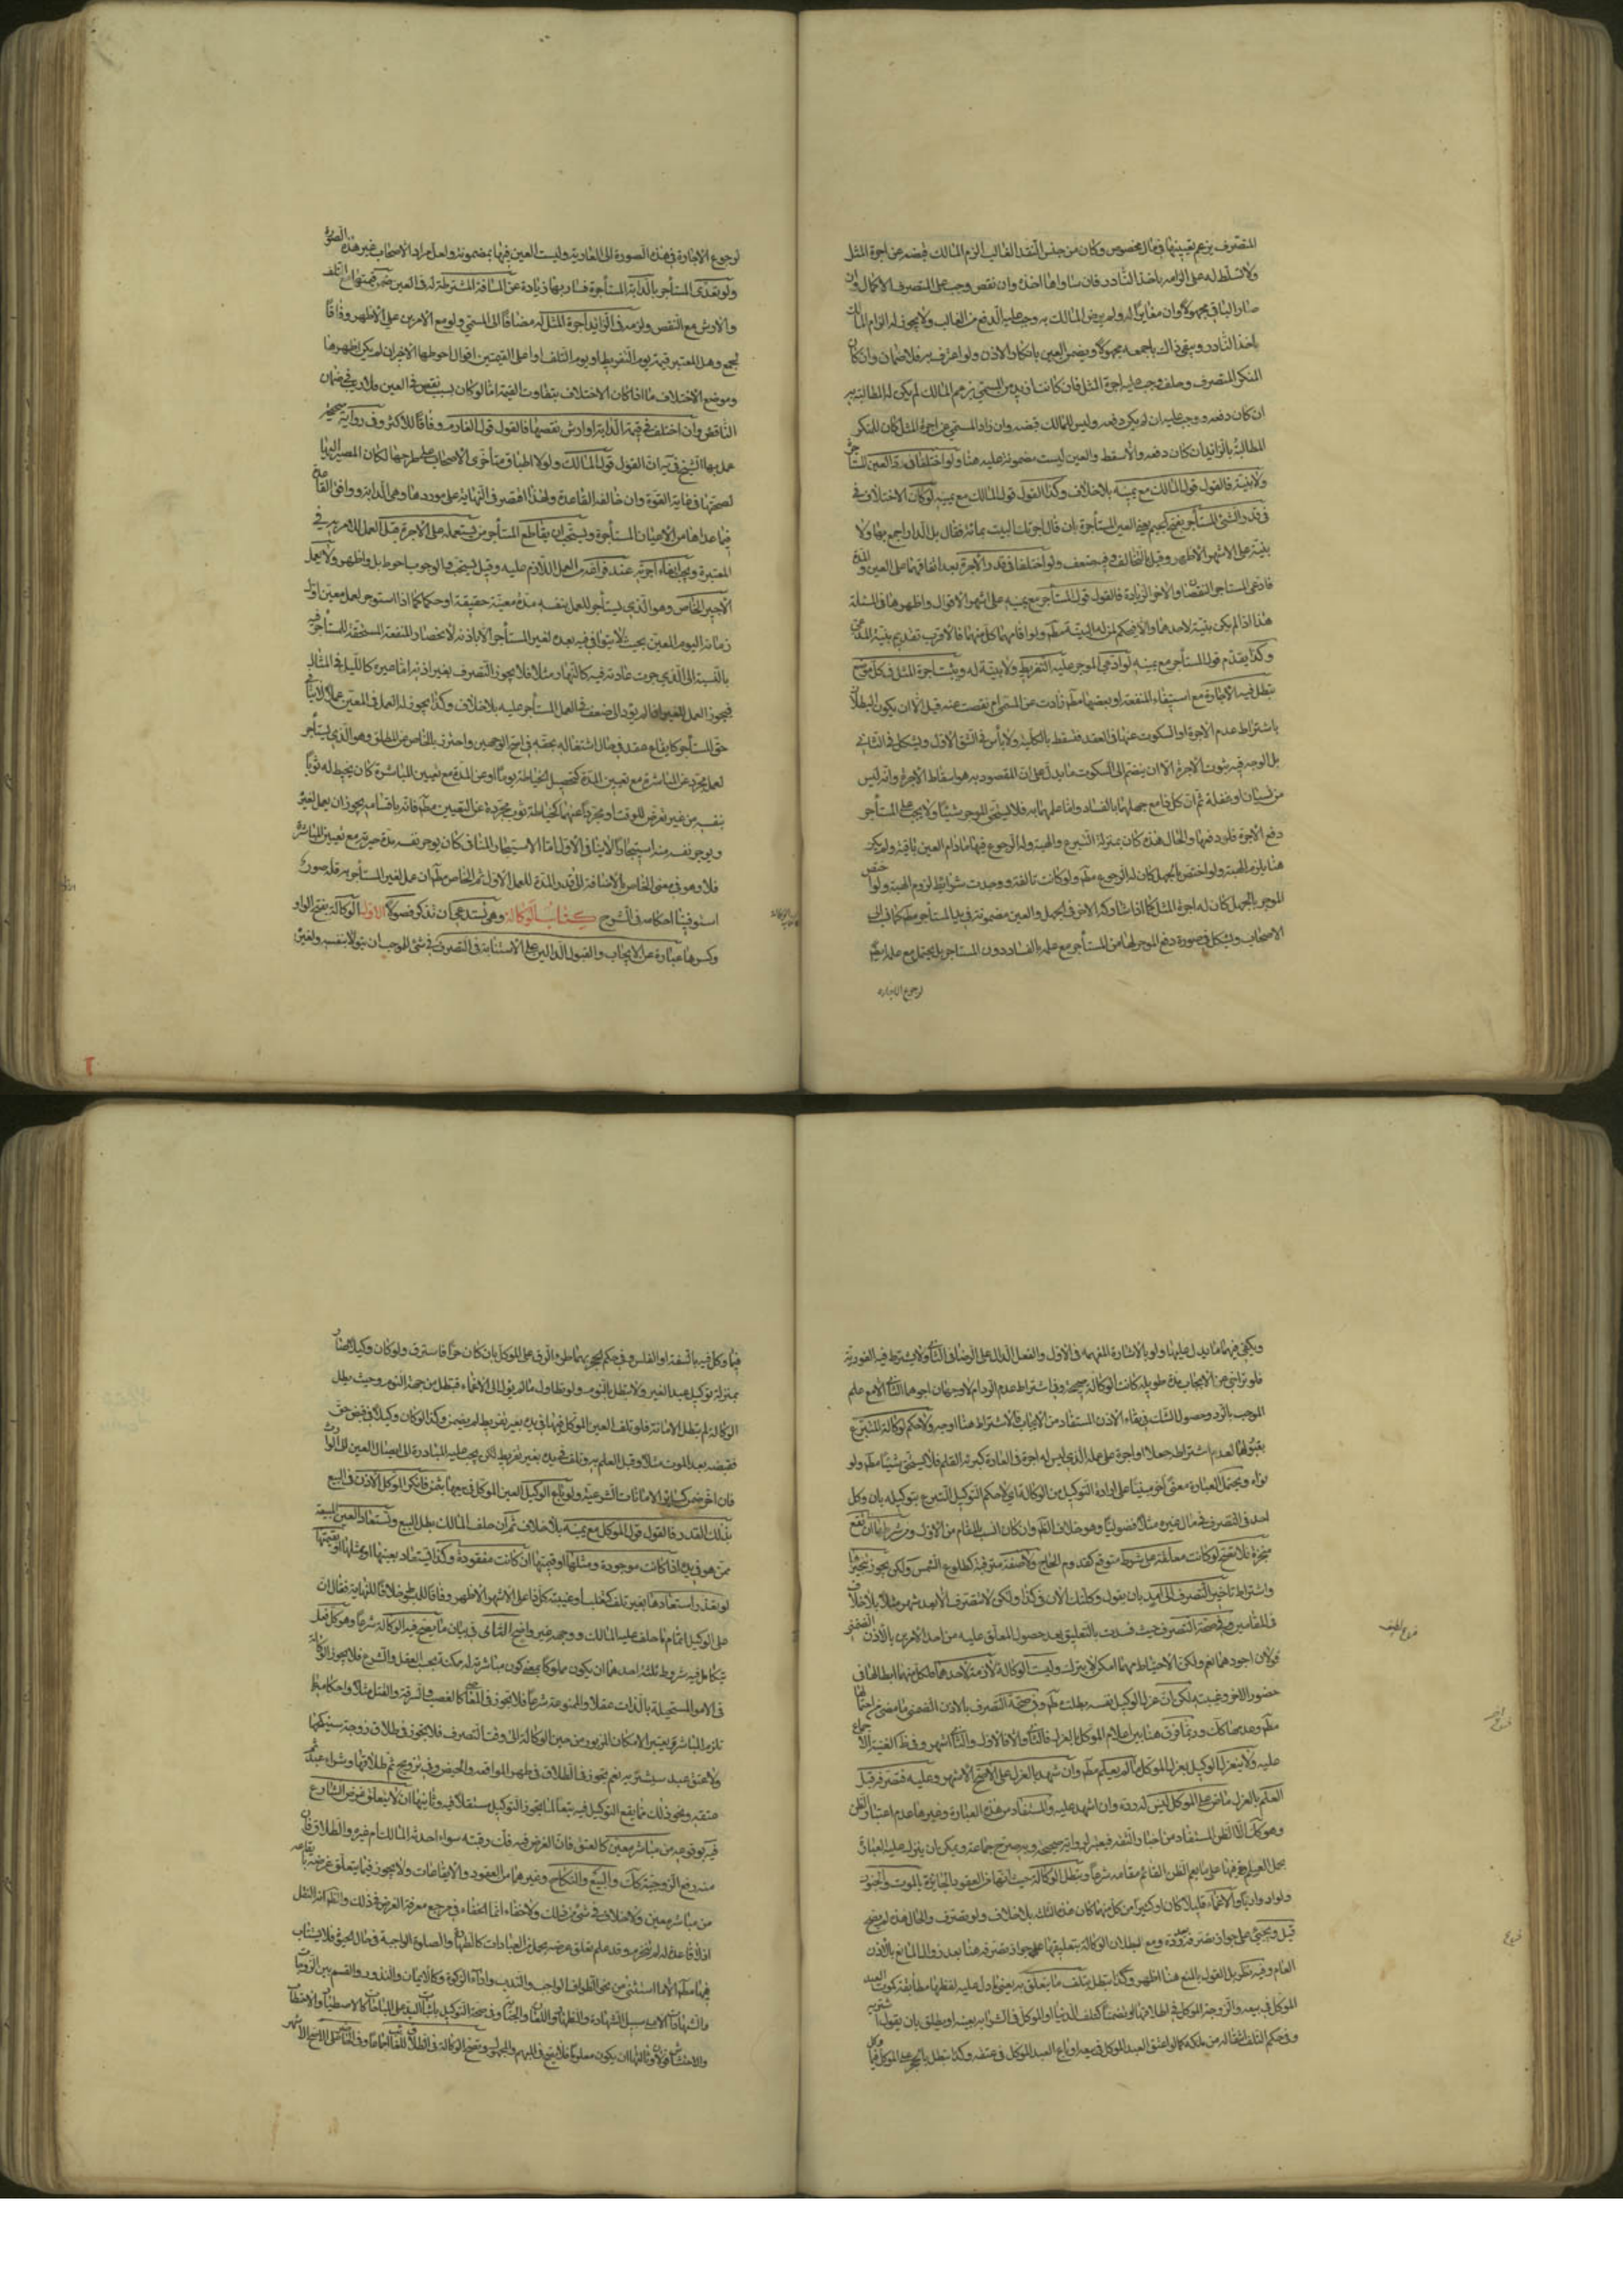 المتصرف بزعم تعيينها في مال مخصوص وكان من جنس النقد الغالب الزم المالك قبضه عن اجرة المثل
ولا تسلط له على الزامه باخذ النادر فان ساواها اخذه وان نقص وجب على المتصرف الاكمال وان
صار الباقي مجهولا وان مغايرا له ولم يرض المالك به وجب عليه الدفع من الغالب ولا يجوز له الزام المالك
باخذ النادر ويضمن العين بانكار الاذن ولو اعترف به فلا ضمان وان كان
المنكر المتصرف وحلف وجب عليه اجرة المثل فان كانت ازيد من المسمى بزعم المالك لم يكن له المطالبة به
ان كان دفعه ووجب عليه ان لم يكن دفعه وليس للمالك قبضه وان زاد المسمى عن اجرة المثل كان للمنكر
المطالبة بالزائد ان كان دفعه والا سقط والعين ليست مضمونة عليه هنا ولو اختلفا في قدر العين المستأجرة
ولا بينة فالقول قول المالك مع يمينه بلا خلاف وكذا القول قول المالك مع يمينه لو كان الاختلاف في
في قدر الشيء المستأجر بان قال اجرتك البيت بمائة فقال بل الدار اجمع بها ولا
بينة على الاشهر الاظهر وقيل بالتحالف وفيه ضعف ولو اختلفا في قدر الاجرة بعد اتفاقهما على العين والمدة
فادعى المستاجر النقصان والاخر الزيادة فالقول قول المستأجر مع يمينه على اشهر الاقوال واظهرها في المسئلة
هذا اذا لم يكن بينة لاحدهما والا فيحكم لمن له البينة مطم ولو اقامها كل منهما فالاقرب تقديم بينة المدعي
وكذا يقدم قول المستأجر مع يمينه لو ادعى الموجر عليه التفريط ولا بينة له ويثبت اجرة المثل في كل موضع
تبطل فيه الاجارة مع استيفاء المنفعة او بعضها مطم زادت عن المسمى ام نقصت عنه قيل الا ان يكون البطلان
باشتراط عدم الاجرة او السكوت عنها في العقد فتسقط بالكلية ولا بأس في الشق الاول ويشكل في الثاني
بل الوجه فيه ثبوت الاجرة الا ان ينضم الى السكوت ما يدل على ان المقصود به هو اسقاط الاجرة وانه ليس
من نسيان او غفلة ثم ان كل ذا مع جهلهما بالفساد واما علمهما به فلا يستحق الموجر شيئا ولا يجب على المستأجر
دفع الاجرة فلو دفعها والحال هذه كان بمنزلة التبرع والهبة وله الرجوع فيها مادام العين باقية ولم يكن
هنا ما يلزم الهبة ولو اختص بالجهل كان له الرجوع مطم ولو كانت تالفة ووجدت شرائط لزوم الهبة ولو اختص
الموجر بالجهل كان له اجرة المثل كما اذا شاركه الاخر في الجهل والعين مضمونة في يد المستأجر مطم كما في
الاصحاب ويشكل في صورة دفع الموجر لها من المستأجر مع علمه بالفساد دون المستاجر بل يحتمل مع علمه ايضا
لرجوع الاجارة
لرجوع الاجارة في هذه الصورة الى العارية وليست العين فيها بمضمونة ولعل مراد الاصحاب غير هذه الصورة
ولو تعدى المستأجر بالدابة المستأجرة فسار بها زيادة عن المسافة المشترطة له في العين ضمن قيمتها مع التلف
والارش مع النقص ولزمه في الزائد اجرة المثل له مضافا الى المسمى ولو مع الامرين على الاظهر وفاقا
لجمع وهل المعتبر قيمة يوم التفريط او يوم التلف او اعلى القيمتين اقوال احوطها الاخير ان لم يكن اظهرها
وموضع الاختلاف ما اذا كان الاختلاف بتفاوت القيمة اما لو كان بسبب نقص في العين فلا ريب في ضمان
الناقص وان اختلف في قيمة الدابة او ارش نقصها فالقول قول الغارم وفاقا للاكثر وفي رواية صحيحة
عمل بها الشيخ في يه ان القول قول المالك ولولا اطباق متأخري الاصحاب على طرحها لكان المصير اليها
لصحتها في غاية القوة وان خالفه القاعدة ولهذا اقتصر في النهاية على موردها وهي الدابة ووافق القاعدة
فيما عداها من الاعيان المستأجرة ويستحب ان يقاطع المستأجر من يستعمله على الاجرة قبل العمل للامر به في
المعتبرة ويجب ايفاء اجرته عند فراغه من العمل اللازم عليه وقيل يستحب والوجوب احوط بل واظهر ولا يعمل
الاجير الخاص وهو الذي يستأجر للعمل بنفسه مدة معينة حقيقة او حكما كما اذا استوجر لعمل معين اول
زمانه اليوم المعين بحيث لا يتوانى فيه بعده لغير المستأجر الا باذنه لانحصار المنفعة المستحقة للمستأجر فيه
بالنسبة الى الذي جرت عادته فيه كالنهار مثلا فلا يجوز التصرف بغير اذنه اما غيره كالليل في المثال
فيجوز العمل للغير اذا لم يؤد الى ضعف في العمل المستأجر عليه بلا خلاف وكذا يجوز له العمل في المعين عملا لا ينافي
حق المستأجر كايقاع عقد في حال اشتغاله بحقه في اصح الوجهين واحترز بالخاص عن المطلق وهو الذي يستأجر
لعمل مجرد عن المباشرة مع تعيين المدة كتحصيل الخياطة يوما او عن المدة مع تعيين المباشرة كان يخيط له ثوبا
بنفسه من غير تعرض للوقت او مجردا عنهما كخياطة ثوب مجردة عن التعيين مطم فانه باقسامه يجوز ان يعمل لغيره
ويوجر نفسه منه استيجارا لا ينافي الاول اما الاستيجار المنافي كان يوجر نفسه مدة مع تعيين المباشرة
فلا وهو في معنى الخاص بالاضافة الى قدر المدة للعمل الاول ثم الخاص مطم ان عمل لغير المستأجر به فله صور
استوفينا احكامه في الشرح كتاب الوكالة وهو يستدعي ان نذكر فصولا الاول الوكالة بفتح الواو
وكسرها عبارة عن الايجاب والقبول الدالين على الاستنابة في التصرف في شيء للموجب ان يتولاه بنفسه ولغيره
ويكفي فيهما ما يدل عليهما ولو بالاشارة المفهمة في الاول والفعل الدال على الرضا في الثاني ولا يشترط فيه الفورية
فلو تراخى عن الايجاب مدة طويلة كانت الوكالة صحيحة وفي اشتراط عدم الرد ام لا وجهان اجودهما الثاني الا مع علم
الموجب بالرد وحصول الشك في بقاء الاذن المستفاد من الايجاب فالاشتراط هنا اوجه ولا حكم لوكالة المتبرع
بقبولها لعدم اشتراط جعل او اجرة على عمله الذي ليس له اجرة في العادة كبري القلم فلا يستحق شيئا مطم ولو
نواه ويحتمل العبارة معنى آخر مبنيا على ارادة التوكيل من الوكالة اي لا حكم لتوكيل المتبرع بتوكيله بان وكل
احد في التصرف في مال غيره مثلا فضوليا وهو خلاف الظم وان كان انسب بالمقام من الاول ومن شرائطها ان تقع
منجزة فلا تصح لو كانت معلقة على شرط متوقع كقدوم الحاج ولا صفة مترقبة كطلوع الشمس ولكن يجوز تنجيزها
واشتراط تأخير التصرف الى امد بان يقول وكلتك الان في كذا ولكن لا تتصرف الا بعد شهر مثلا بلا خلاف
في المقامين وفي صحة التصرف حيث فسدت بالتعليق بعد حصول المعلق عليه من احد الامرين بالاذن الضمني
قولان اجودهما نعم ولكن الاحتياط مهما امكن لا يترك وليست الوكالة لازمة لاحدهما فلكل منهما ابطالها في
حضور الاخر وغيبته لكن ان عزل الوكيل نفسه بطلت مطم وفي صحة التصرف بالاذن الضمني ما مضى من احتمالها
مطم وعدمها كك وربما فرق هنا بين اعلام الموكل بالعزل فالثاني والا فالاول والثاني اشهر وفي ظ الغنية الاجماع
عليه ولا ينعزل الوكيل بعزل الموكل ما لم يعلم مطم وان شهد بالعزل على الاصح الاشهر وعليه فتصرفه قبل
العلم بالعزل ماض على الموكل ليس له رده وان اشهد عليه والمستفاد من هذه العبارة وغيرها عدم اعتبار الظن
وهو كك الا الظن المستفاد من اخبار الثقة فيعتبر لرواية صحيحة وبه صرح جماعة ويمكن ان ينزل عليه العبارة
بحمل العلم فيها على ما يعم الظن القائم مقامه شرعا وتبطل الوكالة حيث انها من العقود الجائزة بالموت والجنون
ولو ادوارا والاغماء قليلا كان او كثيرا من كل منهما كان هذه الثلث بلا خلاف ولو تصرف والحال هذه لم يصح
قيل ويجيء على جواز تصرفه مع رده ومع بطلان الوكالة بتعليقها على جواز تصرفه هنا بعد زوال المانع بالاذن
العام وفيه نظر بل القول بالمنع هنا اظهر وكذا تبطل بتلف ما يتعلق به بعينه ما دل عليه لفظها مطابقة كموت العبد
الموكل في بيعه والزوجة الموكل في طلاقها او تضمنا كتلف الدينار الموكل في الشراء بعينه او يطلق بان يقول اشتر به
وفي حكم التلف انتقاله من ملكه كما لو اعتق العبد الموكل في بيعه او باع العبد الموكل في عتقه وكذا تبطل بالحجر على الموكل فيما
فيما وكل فيه بالسفه او الفلس وفي حكم الحجر بهما طرو الرق على الموكل بان كان حرا فاسترق ولو كان وكيلا صار
بمنزلة توكيل عبد الغير ولا تبطل بالنوم ولو تطاول ما لم يؤد الى الاغماء فتبطل من جهته لا النوم وحيث بطل
الوكالة لم تبطل الامانة فلو تلف العين الموكل فيها في يده بغير تفريط لم يضمن وكذا لو كان وكيلا في قبض حق
فقبضه بعد الموت مثلا وقبل العلم به وتلف في يده بغير تفريط لكن يجب عليه المبادرة الى ايصال العين الى الوارث
فان اخر ضمن كسائر الامانات الشرعية ولو باع الوكيل العين الموكل في بيعها بثمن فانكر الموكل الاذن في البيع
بذلك القدر فالقول قول الموكل مع يمينه بلا خلاف ثم ان حلف المالك بطل البيع وتستعاد العين المبيعة
ممن هو في يده اذا كانت موجودة ومثلها او قيمتها ان كانت مفقودة وكذا تستعاد بعينها او بمثلها او بقيمتها
لو تعذر استعادتها بغير تلف كتغلب او غيبة كل ذا على الاشهر الاظهر وفاقا للمبسوط خلافا للنهاية فقال ان
على الوكيل اتمام ما حلف عليه المالك ووجهه غير واضح الثاني في بيان ما يصح فيه الوكالة شرعا وهو كل فعل
تكامل فيه شروط ثلثة احدها ان يكون مملوكا بمعنى كون مباشرته له ممكنة بحسب العقل والشرع فلا يجوز الوكالة
في الامور المستحيلة بالذات عقلا والممنوعة شرعا فلا يجوز في المعاصي كالغصب والسرقة والقتل مثلا واحكامها
تلزم المباشر ويعتبر الامكان المزبور من حين الوكالة الى وقت التصرف فلا يجوز في طلاق زوجة سينكحها
ولا عتق عبد سيشتريه نعم يجوز في الطلاق في طهر المواقعة والحيض وفي تزويج ثم طلاقها وشراء عبد ثم
عتقه ونحو ذلك مما يقع التوكيل فيه تبعا لما يجوز التوكيل مستقلا فيه وثانيها ان لا يتعلق غرض الشارع
فيه بوقوعه من مباشر معين كالعتق فان الغرض فيه فك رقبته سواء احدثه المالك ام غيره والطلاق فان
منه رفع الزوجية كك والبيع والنكاح وغيرهما من العقود والايقاعات ولا يجوز فيما يتعلق غرضه بايقاعه
من مباشر معين ولا خلاف في شيء من ذلك ولا خفاء انما الخفاء في مرجع معرفة الغرض في ذلك والظم انه النقل
اذ لا قاعدة له لم تنخرم وقد علم تعلق غرضه بجملة من العبادات كالطهارة والصلوة الواجبة في حال الحيوة فلا يستناب
فيهما مطم الا ما استثنى من نحو الطواف الواجب والندب واداء الزكوة وكالايمان والنذور والقسم بين الزوجات
والشهادات الا على سبيل الشهادة والظهار واللعان والجناية وفي صحة التوكيل باثبات اليد على المباحات كالاصطياد والاحتطاب
والاحتشاش قولان وثالثها ان يكون معلوما فلا يصح في المبهم والمجهول وتصح الوكالة في الطلاق للغائب اجماعا وفي الحاضر على الاصح الاشهر